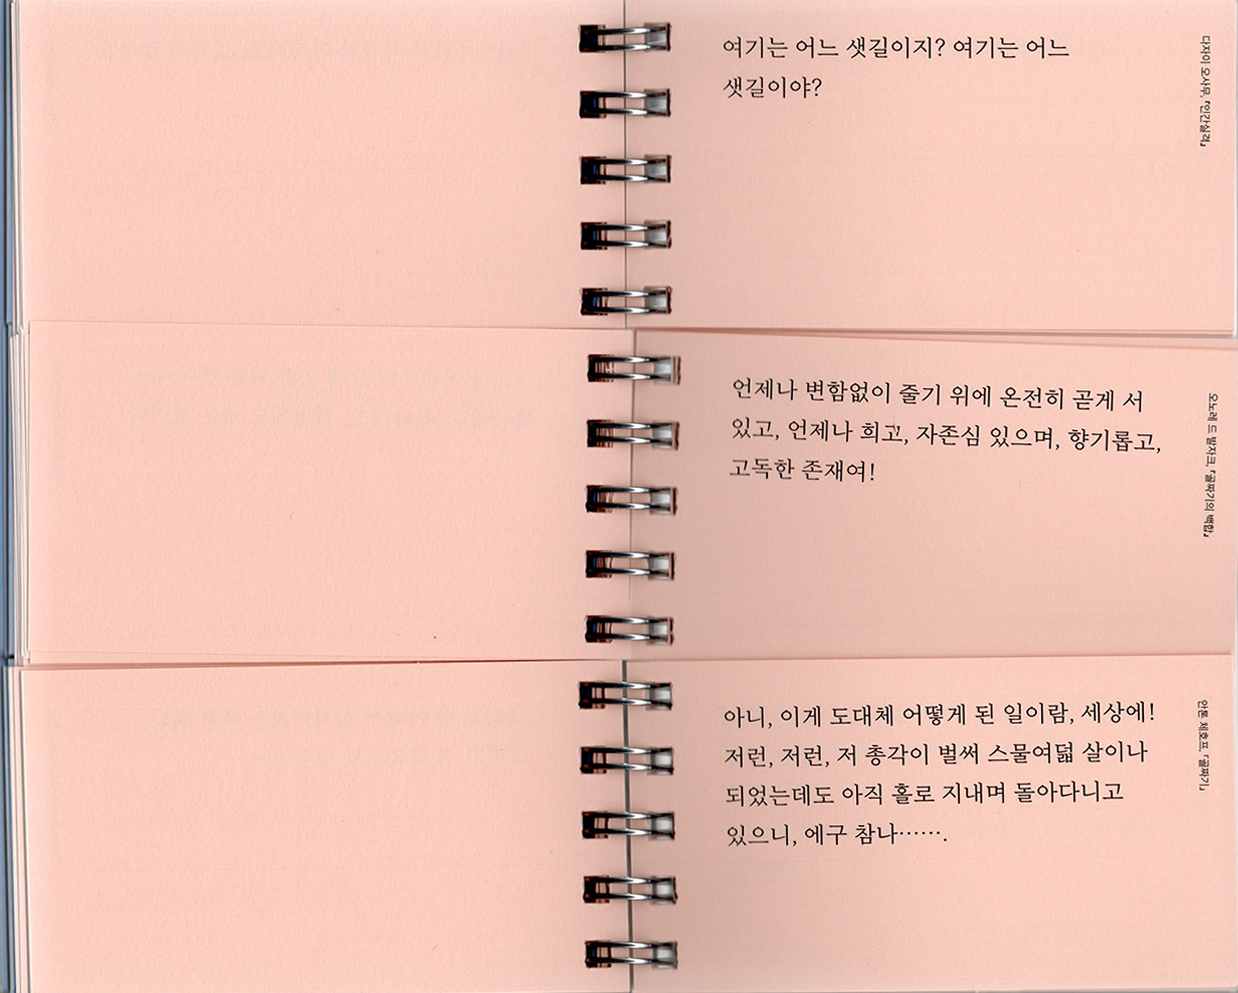 여기는 어느 샛길이지? 여기는 어느
샛길이야?
다자이 오사무, 『인간실격』
언제나 변함없이 줄기 위에 온전히 곧게 서
있고, 언제나 희고, 자존심 있으며, 향기롭고,
고독한 존재여!
오노레 드 발자크, 『골짜기의 백합』
아니, 이게 도대체 어떻게 된 일이람, 세상에!
저런, 저런, 저 총각이 벌써 스물여덟 살이나
되었는데도 아직 홀로 지내며 돌아다니고
있으니, 에구 참나…….
안톤 체호프, 『골짜기』